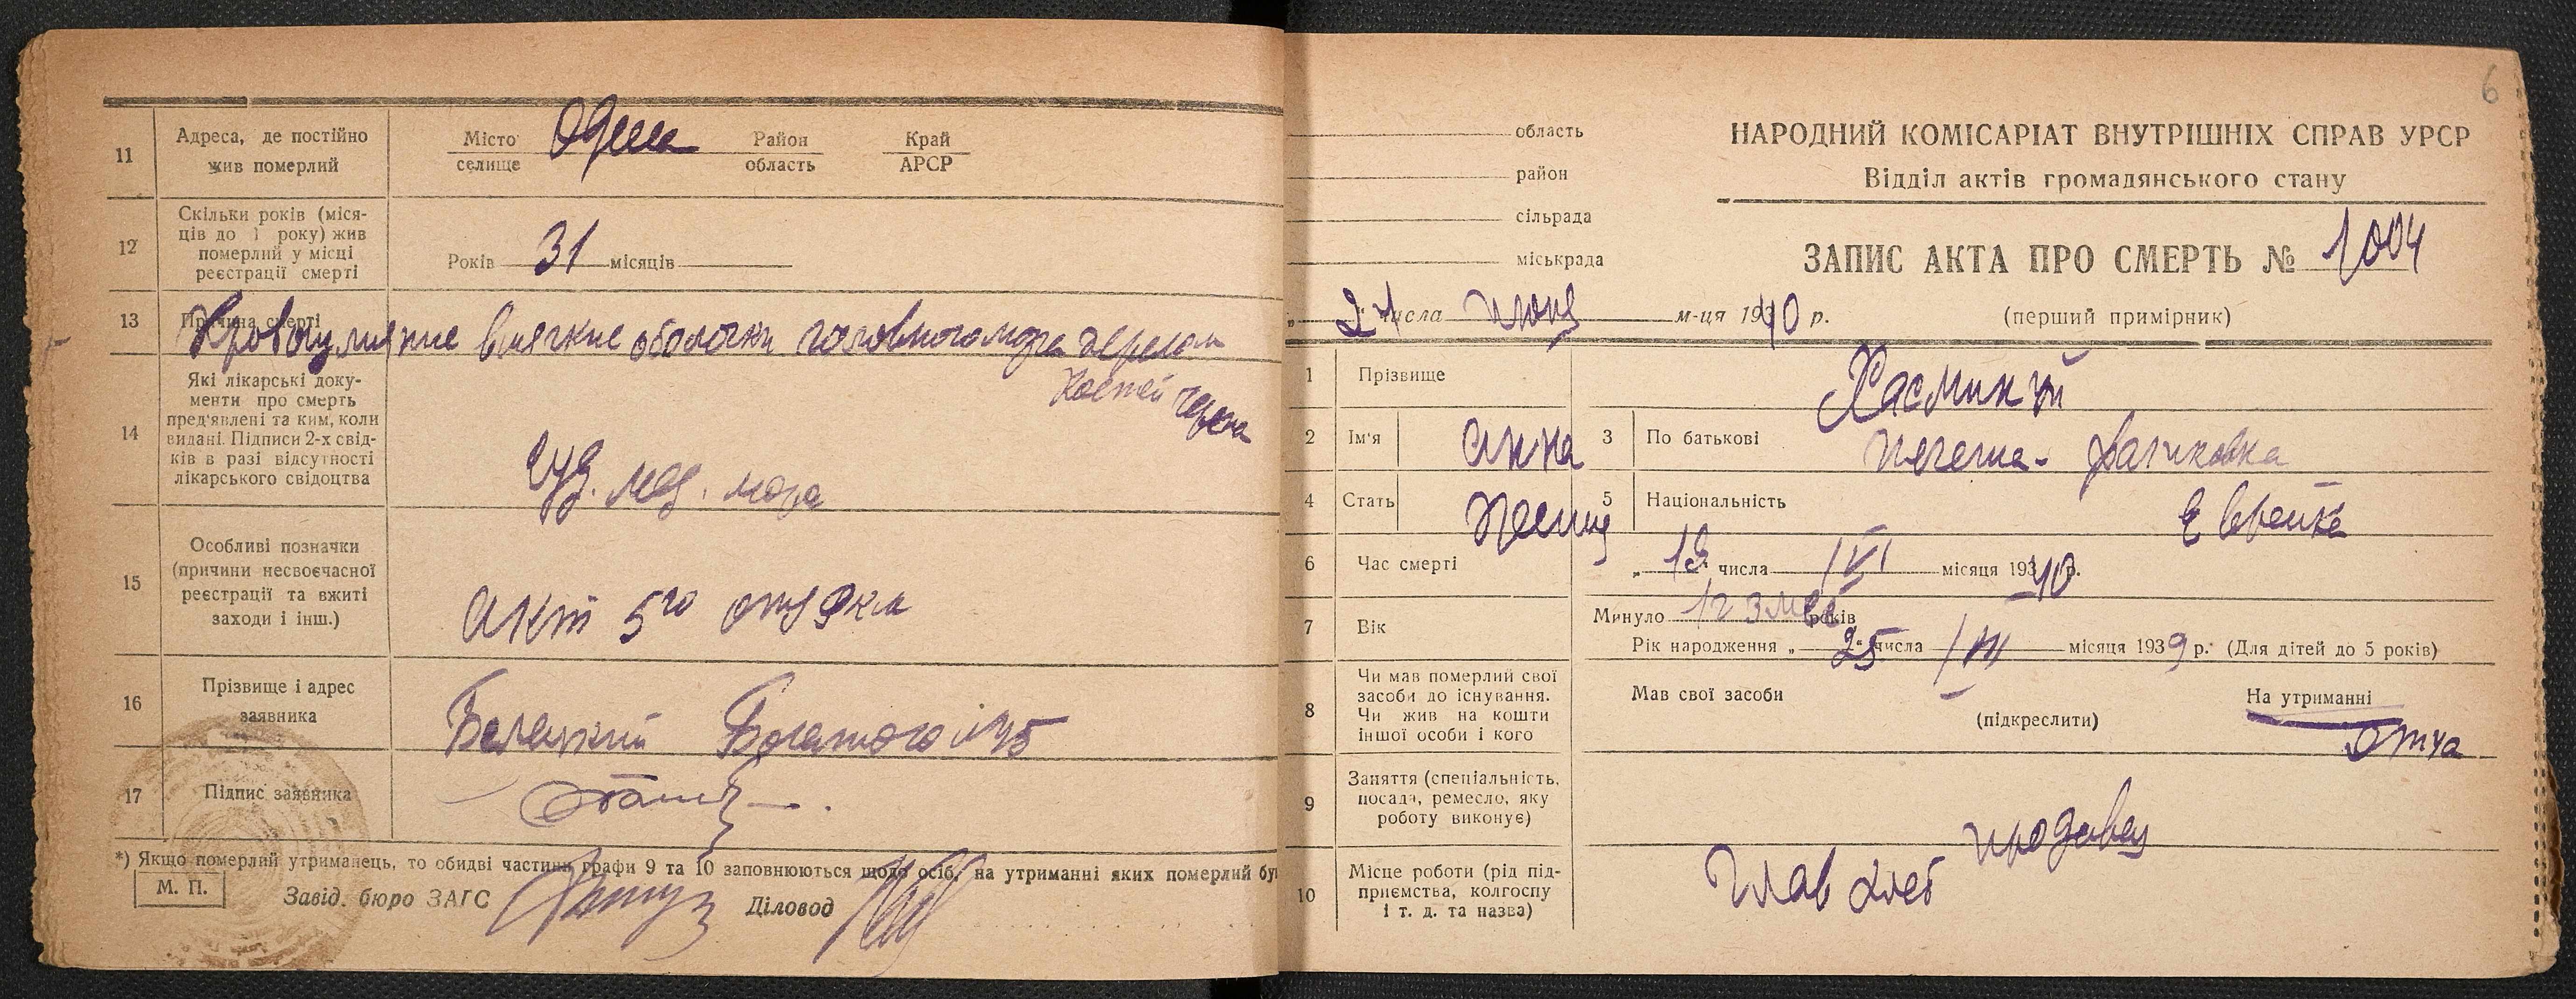 11
Адреса, де постійно
жив померлий
Місто
селище
Одесса
Район
область
Край
АРСР
12
Скільки років (міся-
ців до 1 року) жив
померлий у місці
реєстрації смерті
Років 31 місяців
13
Причина смерті
Кровоизлияние в мягкие оболочки головного мозга перелом
костей черепа
14
Які лікарські доку-
менти про смерть
пред'явлені та ким, коли
видані. Підписи 2-х свід-
ків в разі відсутності
лікарського свідоцтва
суд. мед. морга
15
Особливі позначки
(причини несвоєчасної
реєстрації та вжиті
заходи і інш.)
Акт 5го
16
Прізвище і адрес
заявника
Белецкий Богатого
17
Підпис заявника
*) Якщо померлий утриманець, то обидві частини графи 9 та 10 заповнюються щодо осіб, на утриманні яких померлий бу
М. П.
Завід. бюро ЗАГС
Діловод
6
область
район
сільрада
міськрада
НАРОДНИЙ КОМІСАРІАТ ВНУТРІШНІХ СПРАВ УРСР
Відділ актів громадянського стану
ЗАПИС АКТА ПРО СМЕРТЬ № 1004
„ 21 числа июня м-ця 1940 р.
(перший примірник)
1
Прізвище
2
Ім'я
Анна
3
По батькові
4
Стать
женщ
5
Національність
Еврейка
6
Час смерті
числа VI місяця 1940 р.
7
Вік
Минуло 1 г 3 мес років
Рік народження „ 25 числа III місяця 1939 р. (Для дітей до 5 років)
8
Чи мав померлий свої
засоби до існування.
Чи жив на кошти
іншої особи і кого
Мав свої засоби
(підкреслити)
На утриманні
отца
9
Заняття (спеціальність,
посада, ремесло, яку
роботу виконує)
продавец
10
Місце роботи (рід під-
приємства, колгоспу
і т. д. та назва)
Главхлеб